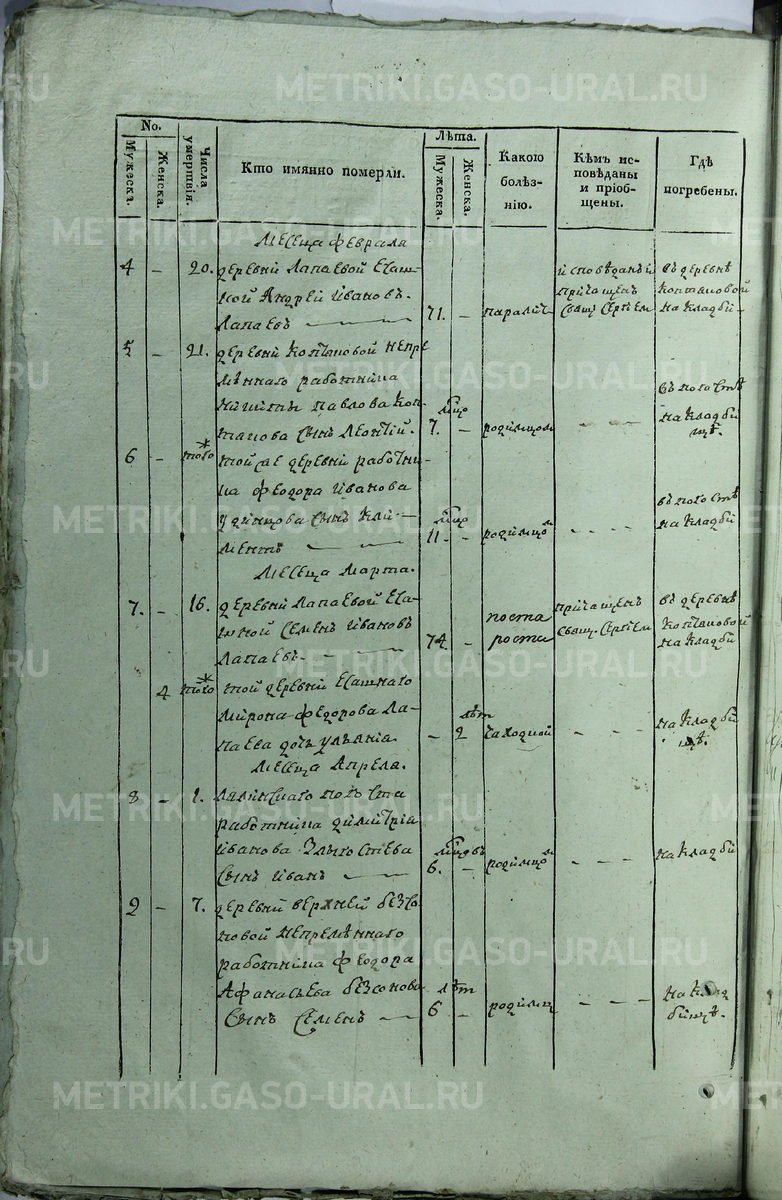 METRIKI.GASO-URAL.RU
No.
Мужеска.
Женска.
Числа умертвія.
Кто имянно померли.
Лѣта.
Мужеска.
Женска.
Какою
болѣз-
нію.
Кѣмъ ис-
повѣданы
и пріоб-
щены.
Гдѣ
погребены.
Месеца февраля
4 - 20. деревни Лапаевой Ясаш-
ной Андрей Ивановъ
Лапаевъ 71. - паралич
исповѣданъ и
причащенъ
Свящ. Сергіем
въ деревнѣ
Коптяковой
на кладби-
5 - 21. деревни Коптяковой непре
мѣннаго работника
Никиты Павлова Коп-
тякова сынъ Леонтій. 7. - родимцом - -
въ погостѣ
на кладби
щѣ.
6 - того той же деревни работни-
ка Феодора Иванова
Удинцова сынъ Кли-
ментъ 11. - родимцом - - -
въ погостѣ
на кладби
Месеца Марта.
7. - 16. деревни Лапаевой Яса-
шной Семен Ивановъ
Лапаевъ 74. -
причащенъ
свящ. Сергіем
въ деревнѣ
Коптяковой
на кладби
4 того той деревни Ясашнаго
Мирона Федорова Ла-
паева дочь Ульянія - 2 лѣт - - -
на кладби
щѣ.
Месеца Апреля.
8 - 1. Лялинскаго погоста
работника Димитрія
Иванова
сынъ Иван 6. - родимцом - - -
на кладби
9 - 7. деревни верхней Безсо
новой непремѣннаго
работника Феодора
Афанасьева Безсонова
сынъ Семенъ лѣт 6 - родимц - - -
на клад
бищѣ.